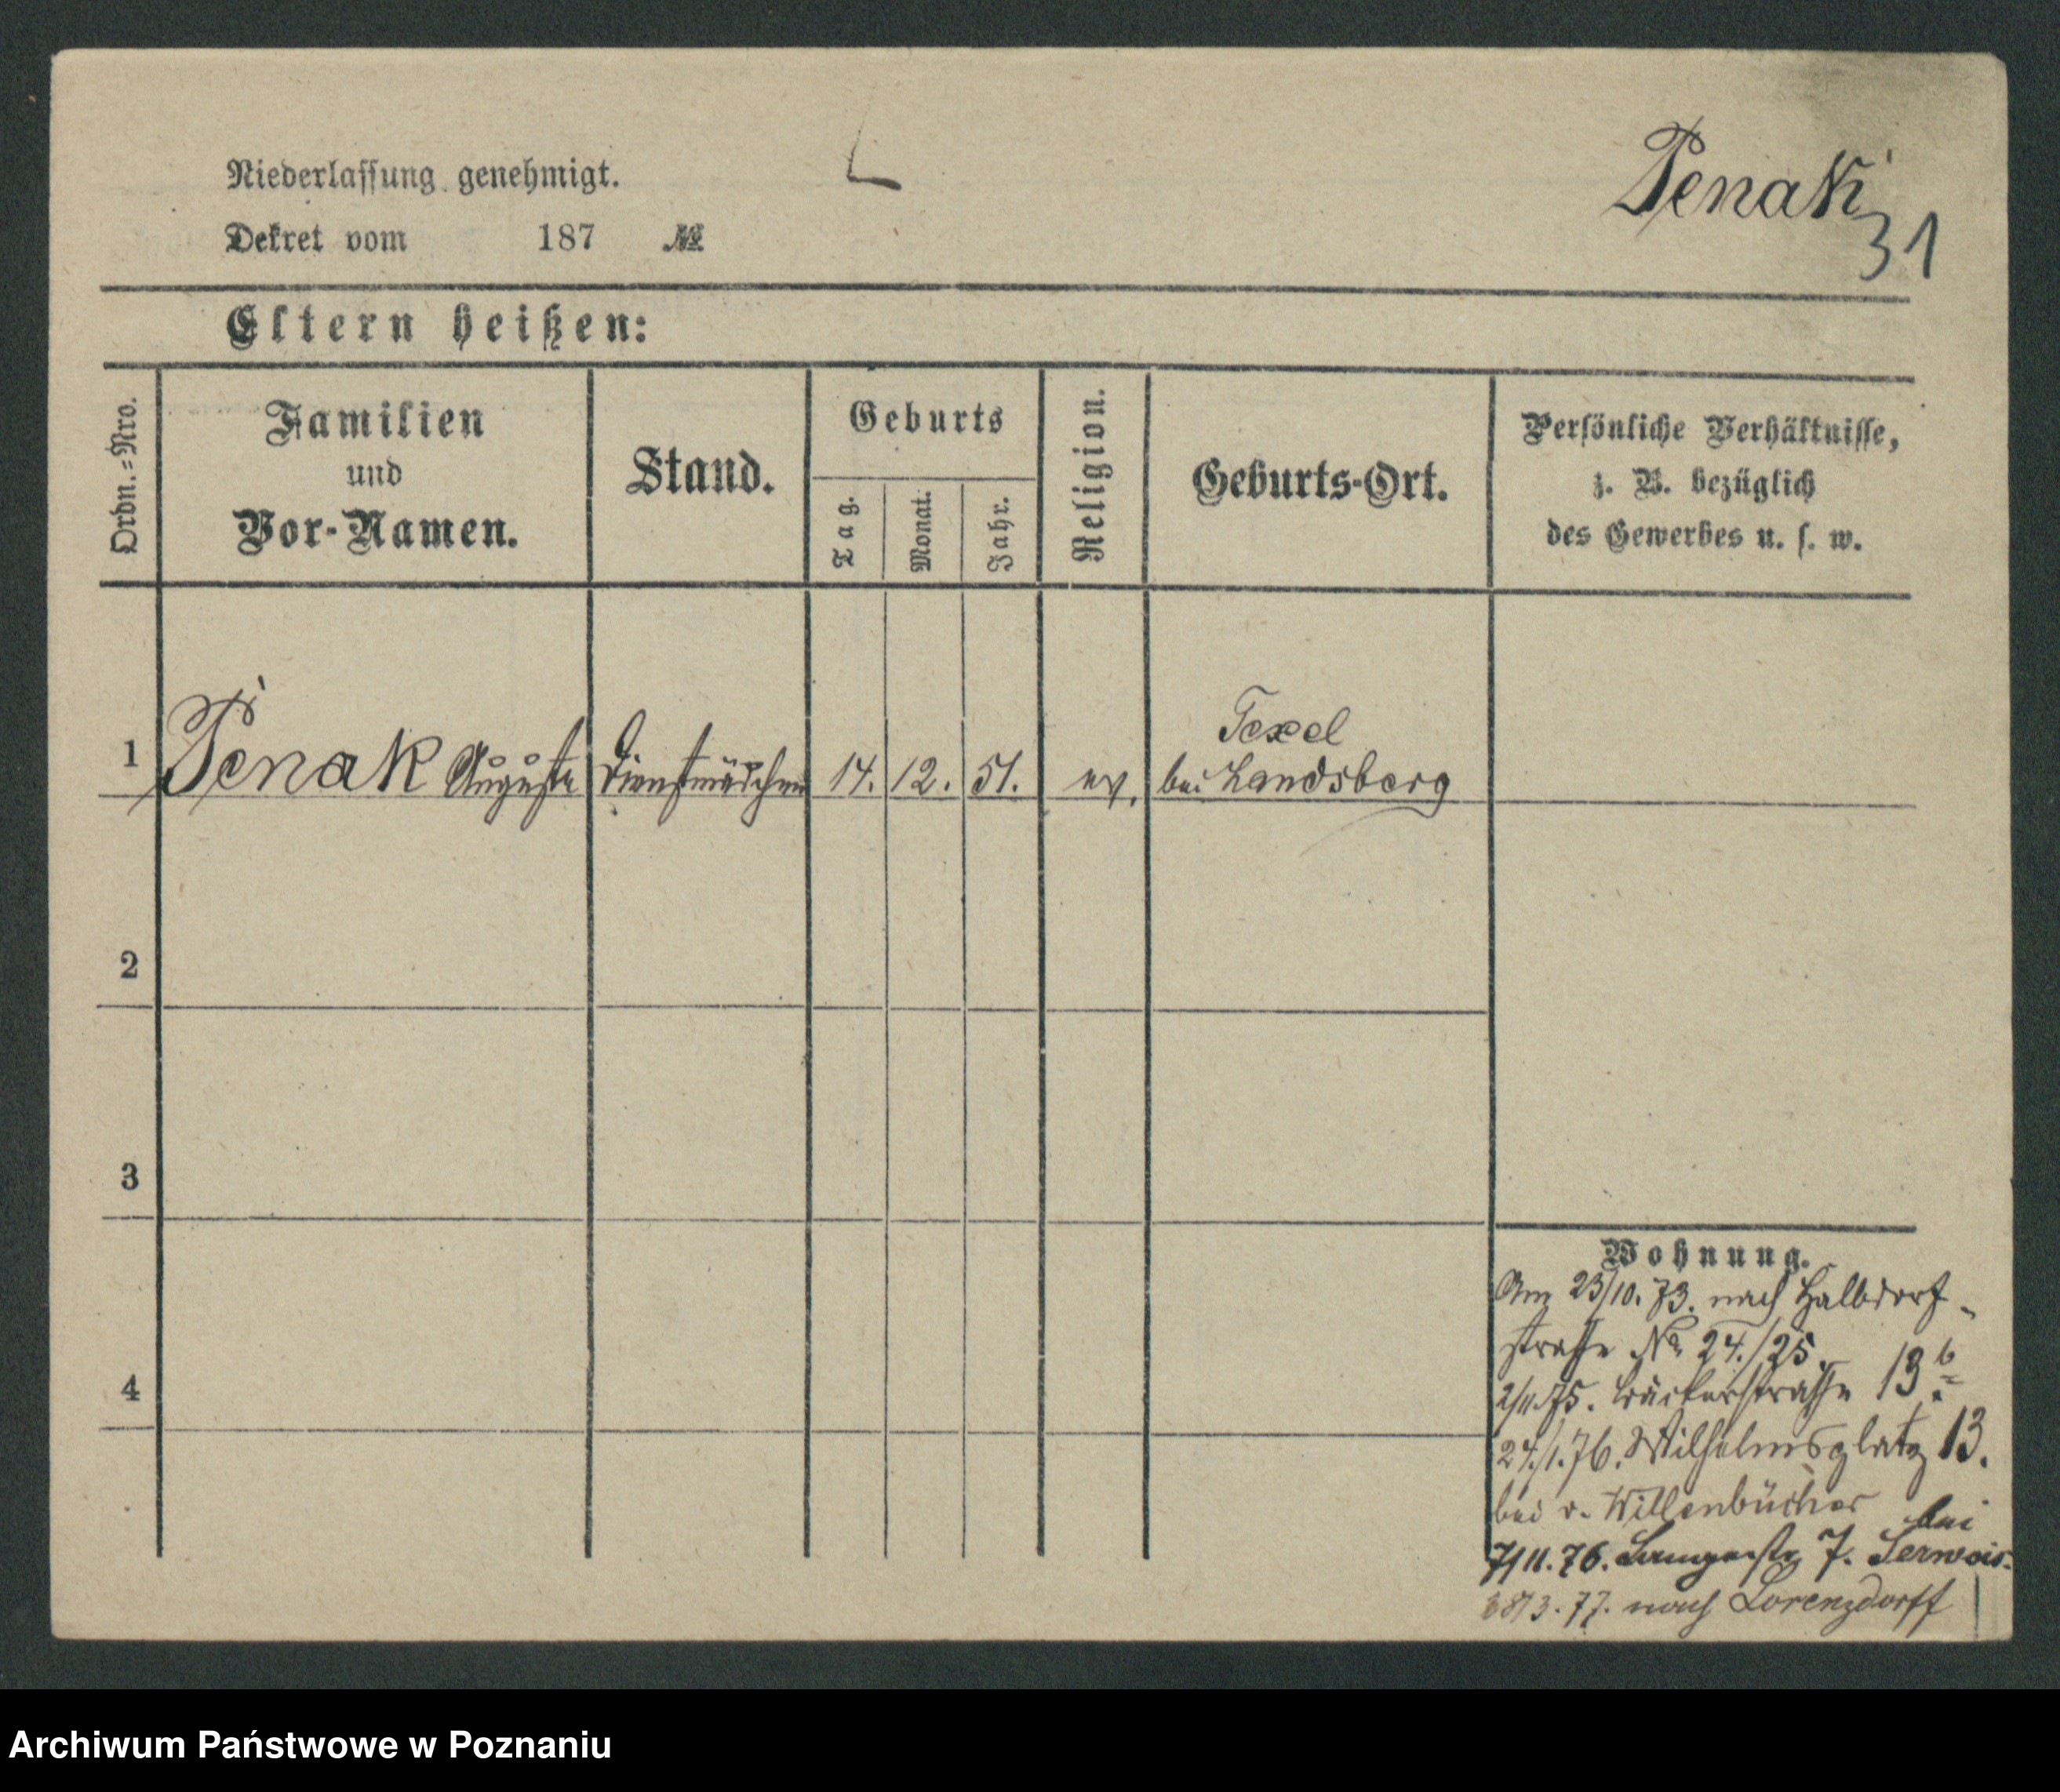 Penak
31
Niederlassung genehmigt.
Dekret vom 187 №
Eltern heißen:
Ordn.=Nro.
Familien
und
Vor-Namen.
Stand.
Geburts
Tag.
Monat.
Jahr.
Religion.
Geburts-Ort.
Persönliche Verhältnisse,
z. B. bezüglich
des Gewerbes u. s. w.
Texel
1 Penak Auguste Dienstmädchen 14. 12. 51. ev. bei Landsberg
2
3
4
Wohnung.
Am 23/10. 73. nach Halbdorf-
strasse No 24./25.
2/11.75. Bäckerstrasse 13 b
24./1.76. Wilhelmsplatz 13.
bei v. Willenbücher
7/11.76. Langestr 7. bei
3.77. nach Lorenzdorff
Archiwum Państwowe w Poznaniu